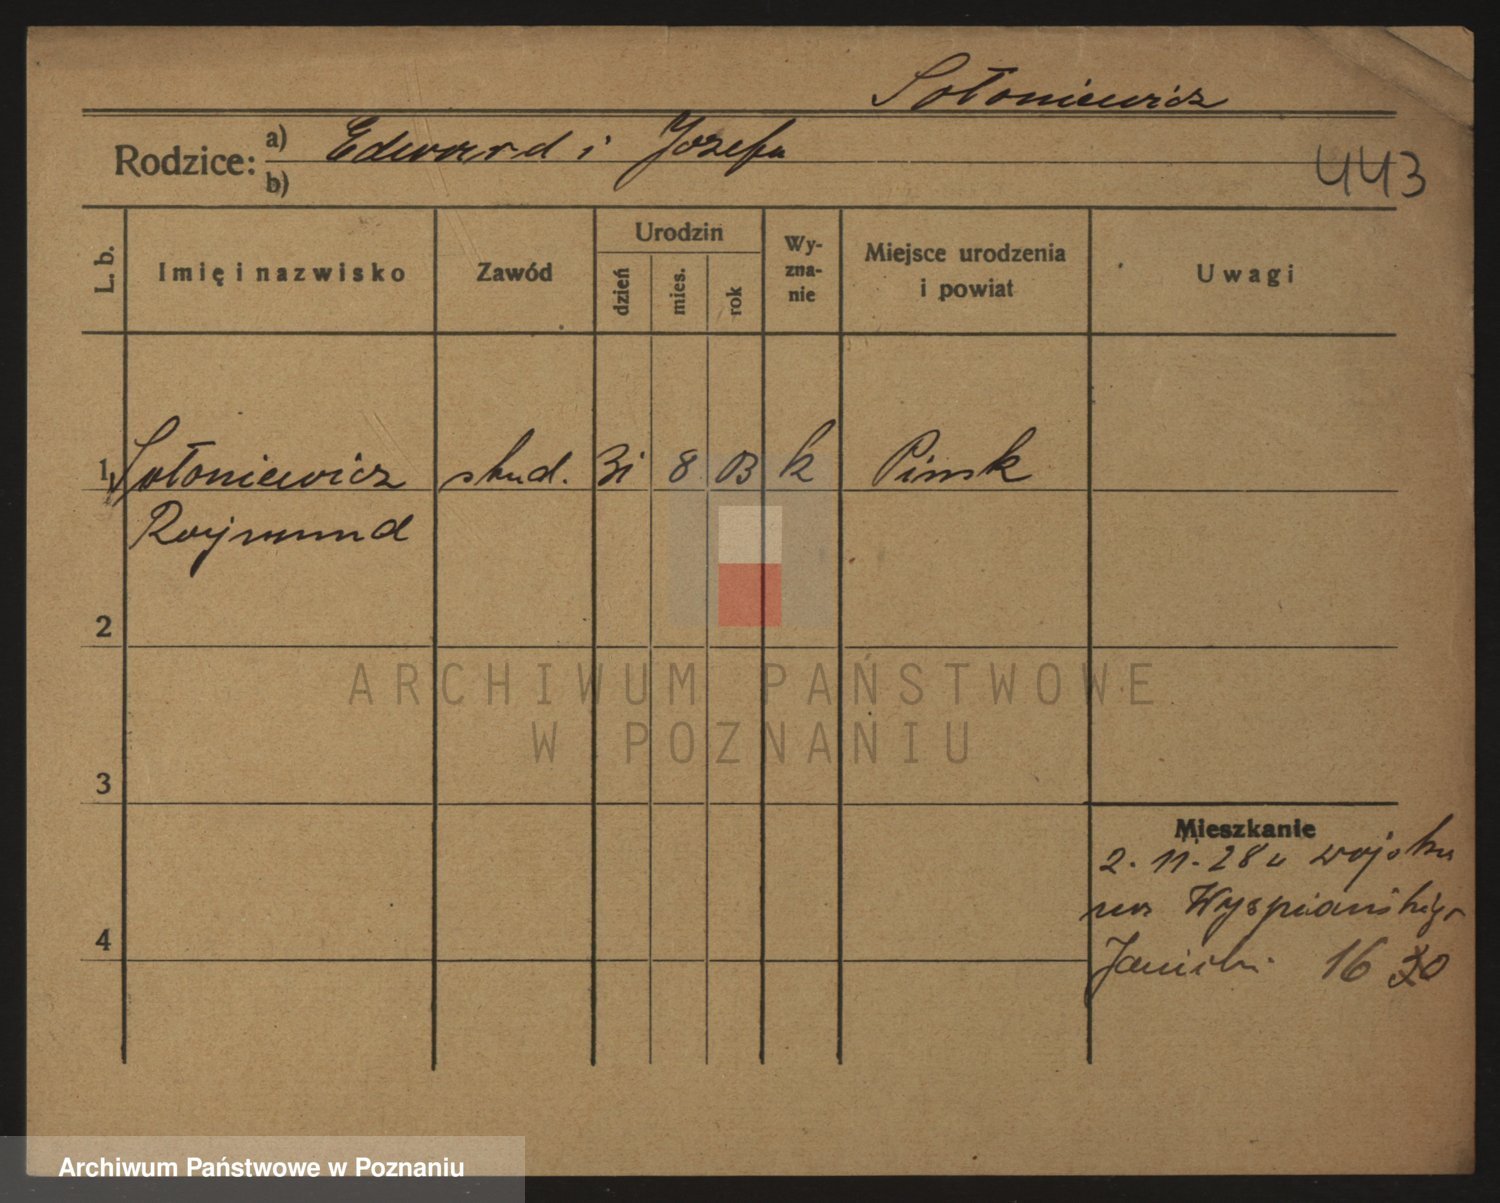 Sołoniewicz
Rodzice: a) Edward i Jozefa
b)
443
L. b.
Imię i nazwisko
Zawód
Urodzin
dzień
mies.
rok
Wy-
zna-
nie
Miejsce urodzenia
i powiat
Uwagi
1 Sołoniewicz stud. 31 8 03 k Pinsk
Rajmund
2
ARCHIWUM PAŃSTWOWE
W POZNANIU
3
Mieszkanie
2. 11. 28 u wojsku
Wyspiańskiego
4
16 30
Archiwum Państwowe w Poznaniu